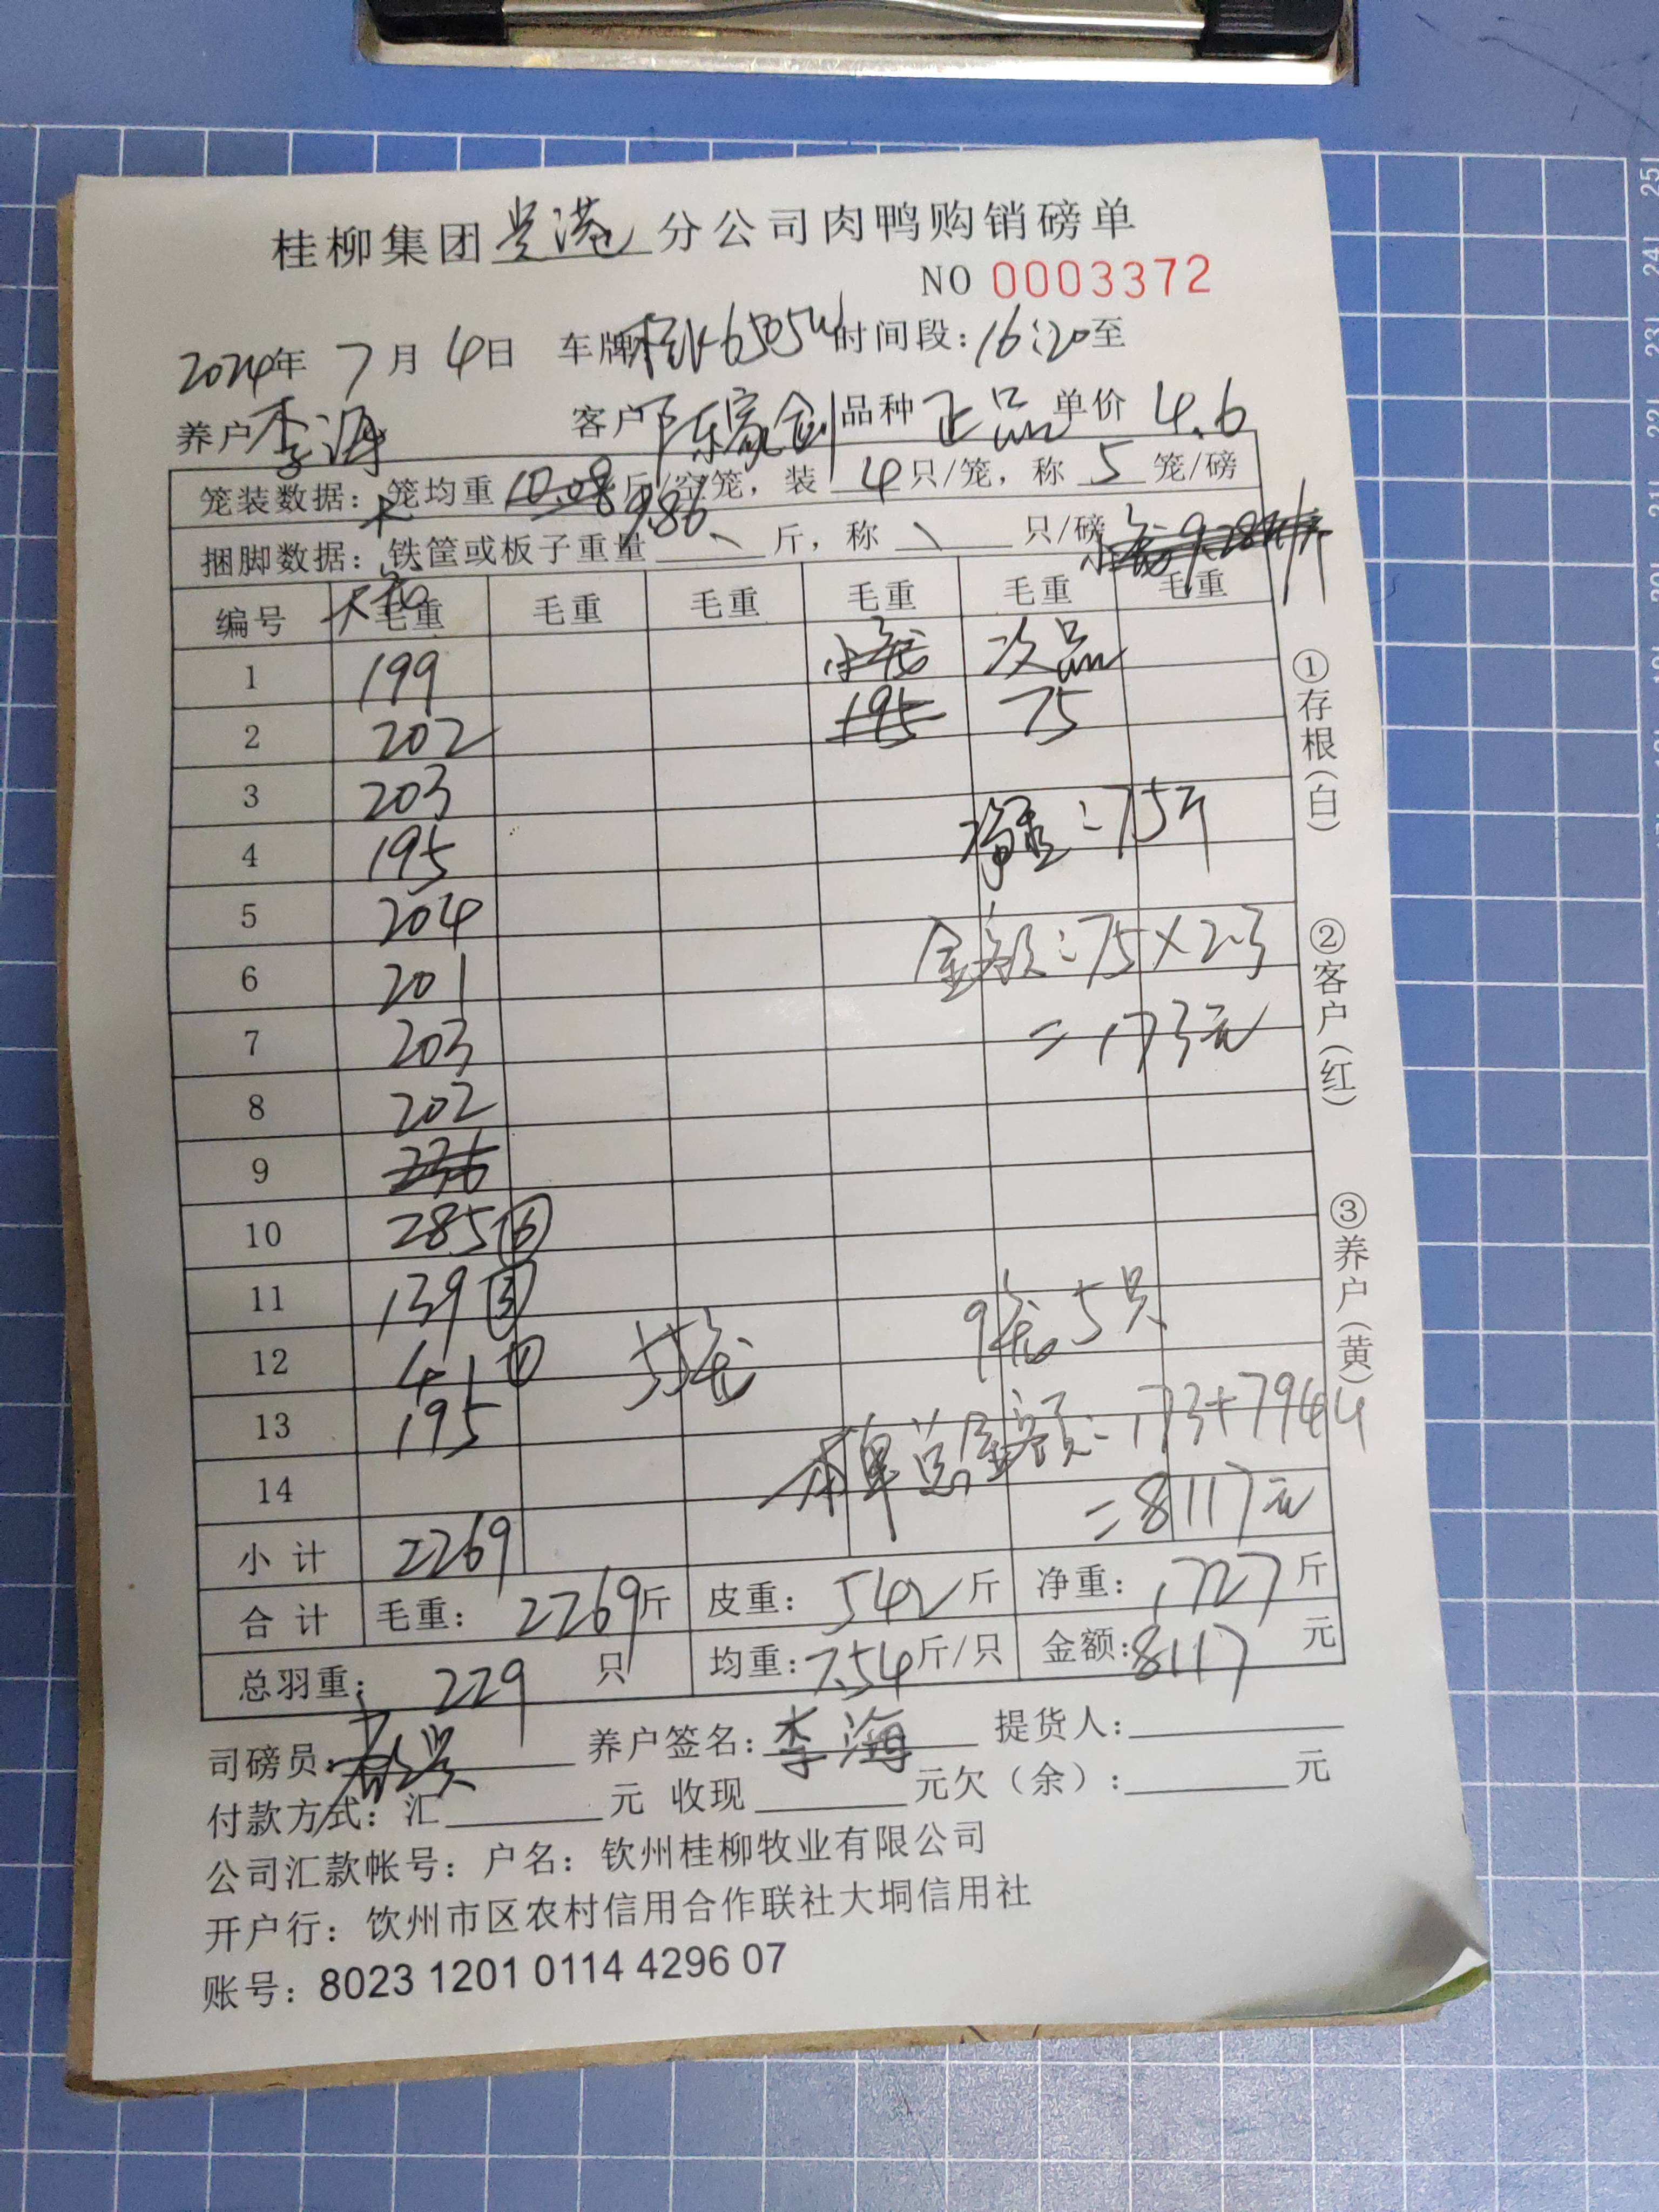 桂柳集团贵港分公司肉鸭购销磅单
NO 0003372
2024年 7月 4日 车牌 桂K6505W 时间段：16:20至
养户 李海 客户 陈家创 品种 正品 单价 4.6
笼装数据：笼均重 10.08 斤/空笼，装 4 只/笼，称 5 笼/磅
大 9.86
捆脚数据：铁筐或板子重量 \ 斤，称 \ 只/磅 小笼9.28斤
编号 大笼 毛重 毛重 毛重 毛重 毛重 毛重
1 199 小笼 次品
2 202 195 75
3 203 净重：75斤
4 195
5 204 金额：75×2.3
6 201
7 203 =173元
8 202
9 236
10 285 ⑥
11 139 ③ 9笼5只
12 41 ① 55笼
13 195 本单总金额：173+7944
14 =8117元
小计 2269
合计 毛重：2269斤 皮重：542斤 净重：1727斤
总羽重：229 只 均重：7.54斤/只 金额：8117 元
司磅员： 养户签名：李海 提货人：
付款方式：汇 元 收现 元欠（余）： 元
公司汇款帐号：户名：钦州桂柳牧业有限公司
开户行：钦州市区农村信用合作联社大垌信用社
账号：8023 1201 0114 4296 07
①存根（白）
②客户（红）
③养户（黄）